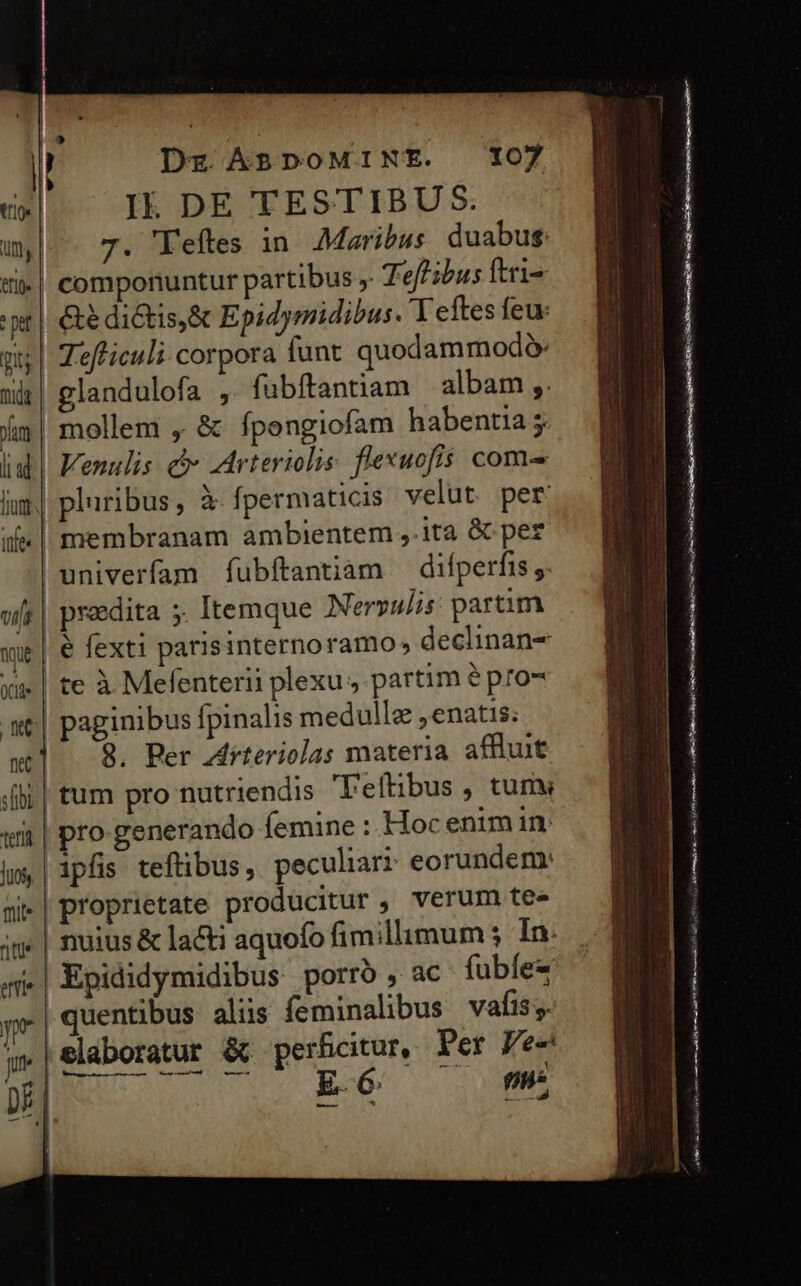 DE ABDOMINE. 107
II. DE TESTIBUS.
7. Teſtes in Maribus duabus
componuntur partibus, Teſtibus ſtri-
ctè dictis, & Epidymidibus. Teſtes ſeu
Teſticuli corpora ſunt quodammodò
glanduloſa, ſubſtantiam albam,
mollem, & ſpongioſam habentia;
Venulis & Arteriolis flexuoſis com-
pluribus, à ſpermaticis velut per
membranam ambientem, ita & per
univerſam ſubſtantiam diſperſis,
prædita; Itemque Nervulis partim
è ſexti paris interno ramo, declinan-
te à Meſenterii plexu, partim è pro-
paginibus ſpinalis medullæ, enatis.
8. Per Arteriolas materia affluit
tum pro nutriendis Teſtibus, tum
pro generando ſemine: Hoc enim in
ipſis teſtibus, peculiari eorundem
proprietate producitur, verum te-
nuius & lacti aquoſo ſimillimum; In
Epididymidibus porrò, ac ſubſe-
quentibus aliis ſeminalibus vaſis,
elaboratur & perficitur, Per Ve-
E 6 nus
DE